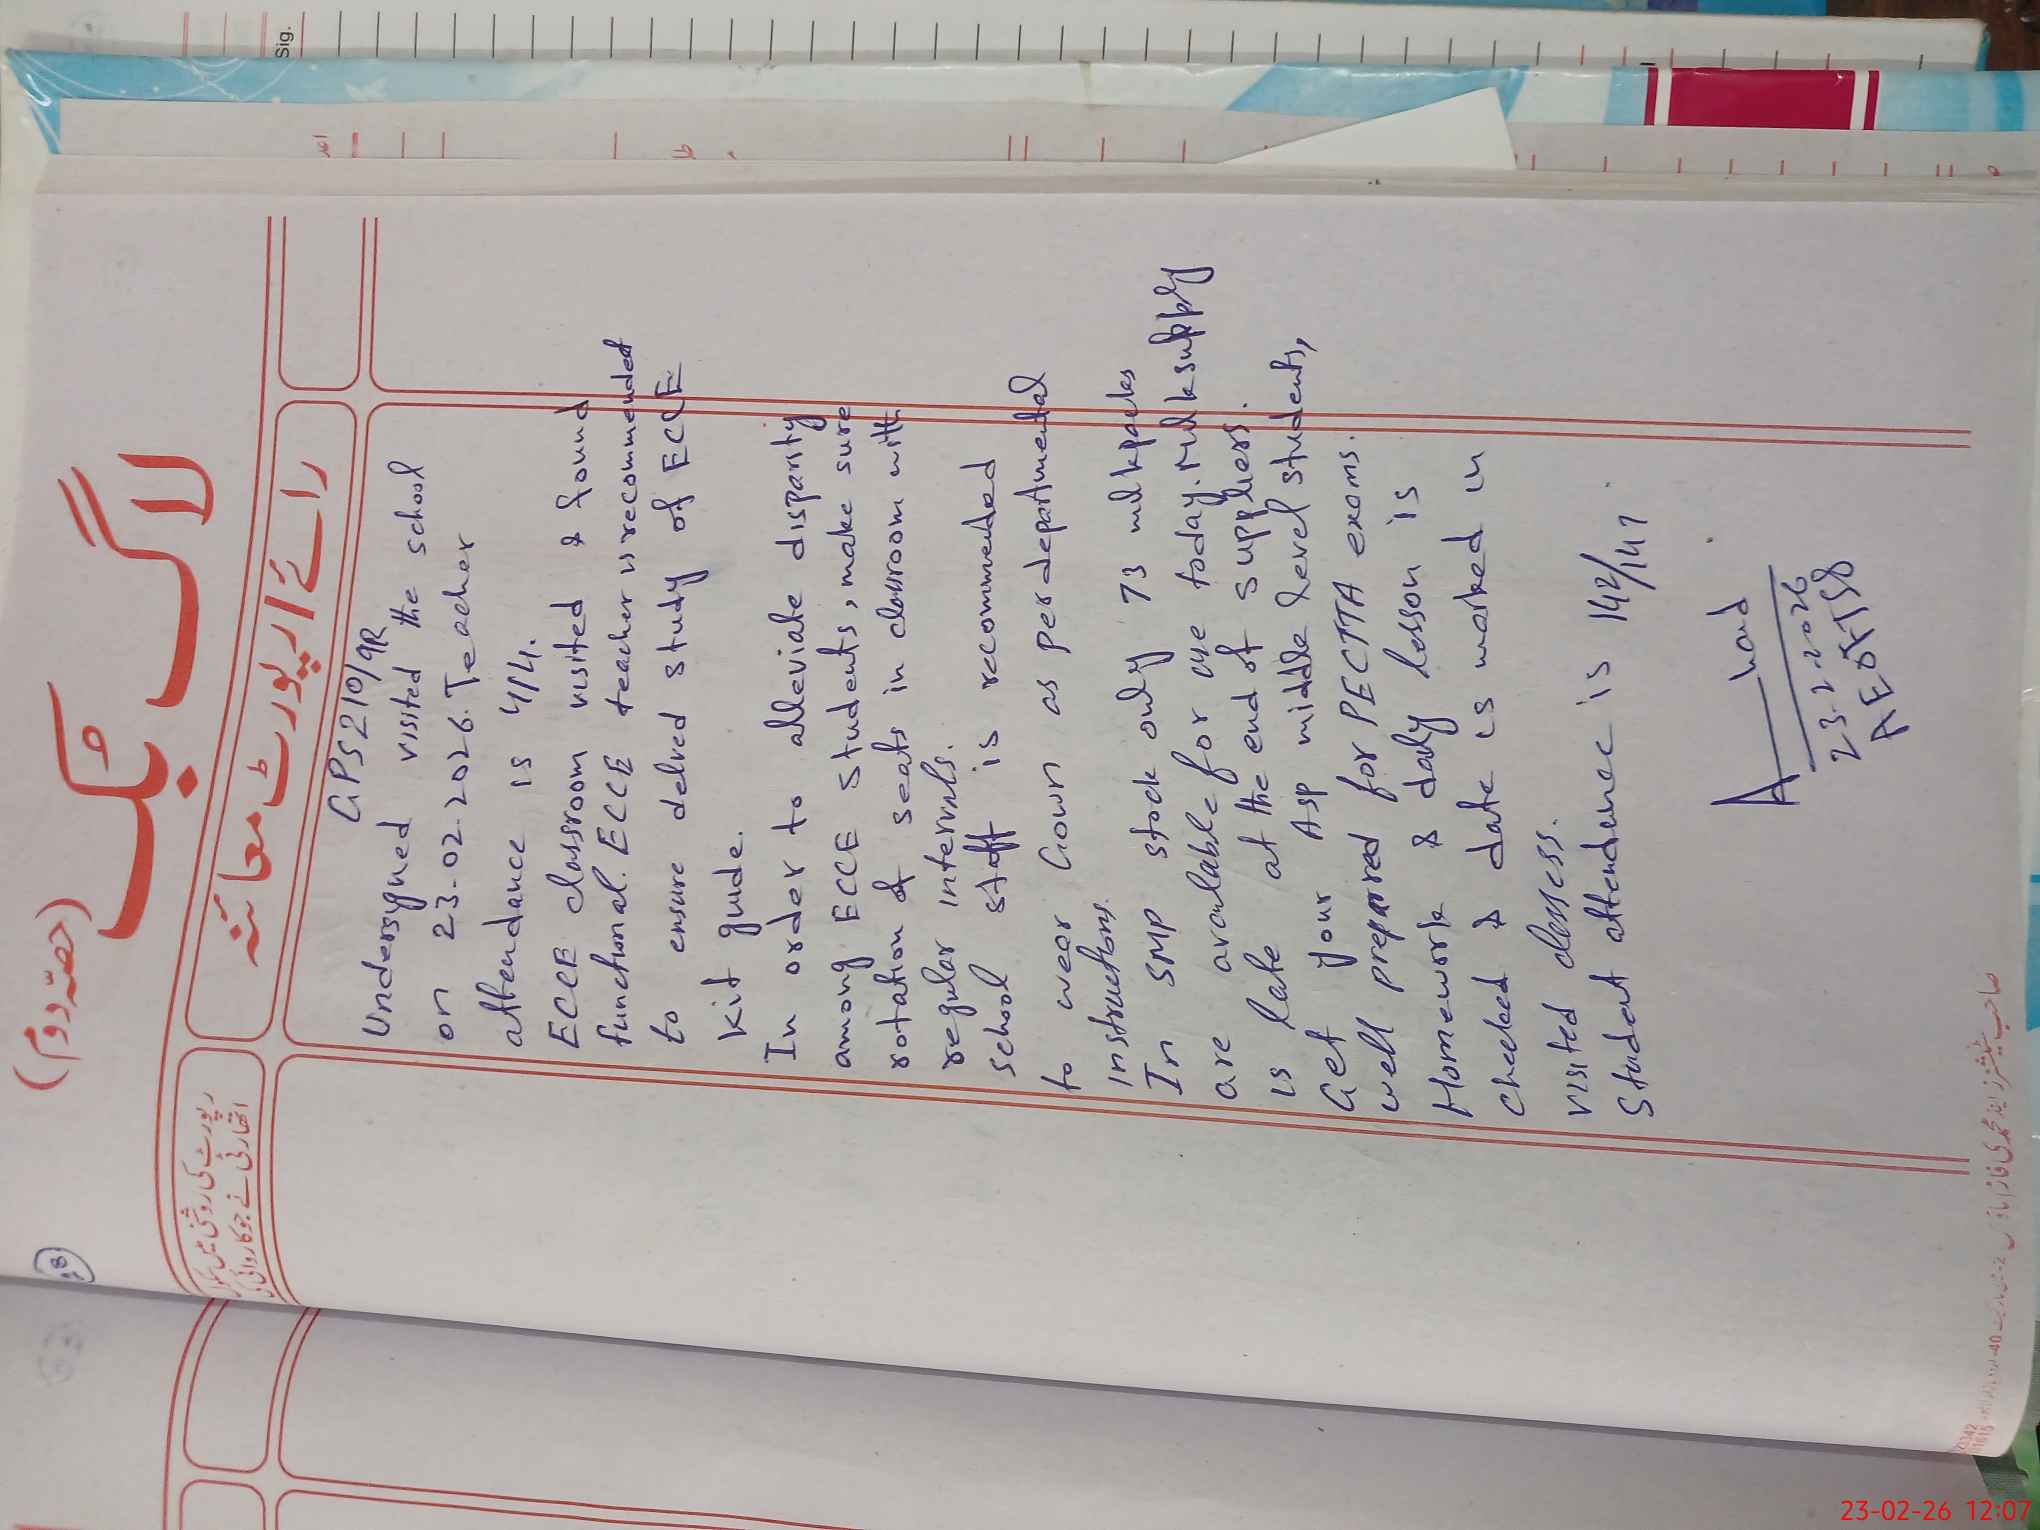 (حصہ دوم)
لاگ بک
رپورٹ کی روشنی میں سکول
اتھارٹی نے جو کاروائی کی
رائے / رپورٹ معائنہ
GPS 210/9R
Undersigned visited the school
on 23.02.2026. Teacher
attendance is 4/4.
ECCE classroom visited & found
functional. ECCE teacher is recommended
to ensure delved study of ECCE
Kit guide.
In order to alleviate disparity
among ECCE students, make sure
rotation of seats in classroom with
regular intervals.
school staff is recommended
to wear Gown as per departmental
instructions.
In SMP stock only 73 milkpacks
are available for use today. Milk supply
is late at the end of suppliers.
Get your Asp middle level students,
well preparred for PECTTA exams.
Homework & daily lesson is
checked & date is marked in
visited classess.
Student attendance is 142/147.
23-2-2026
Sig.
23-02-26 12:07